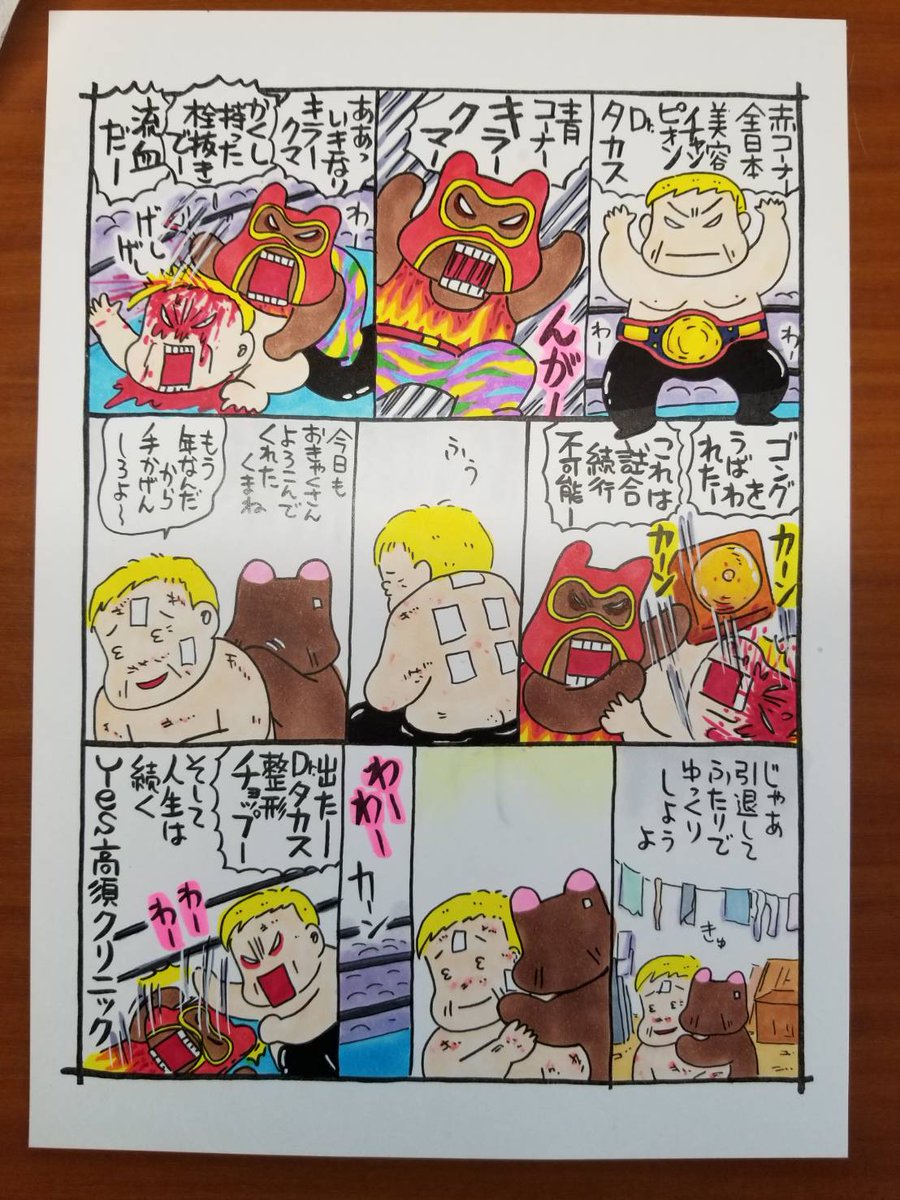 赤コーナー
全日本
美容
チャン
ピオン
Dr.
タカス
わー
わー
青
コーナー
キラー
クマー
んがー
ああっ
いきなり
キラー
クマ
かくし
持った
栓抜き
でー
流血
だー
わー
げし
げし
ゴング
を
うばわ
れたー
これは
試合
続行
不可能ー
カーン
カーン
ふぅ
今日も
おきゃくさん
よろこんで
くれた
くまね
もう
年なんだ
から
手かげん
しろよ〜
じゃあ
引退して
ふたりで
ゆっくり
しよう
よ
きゅ
わー
わー
カーン
出たー
Dr.タカス
整形
チョップー
わー
わー
そして
人生は
続く
Yes高須クリニック